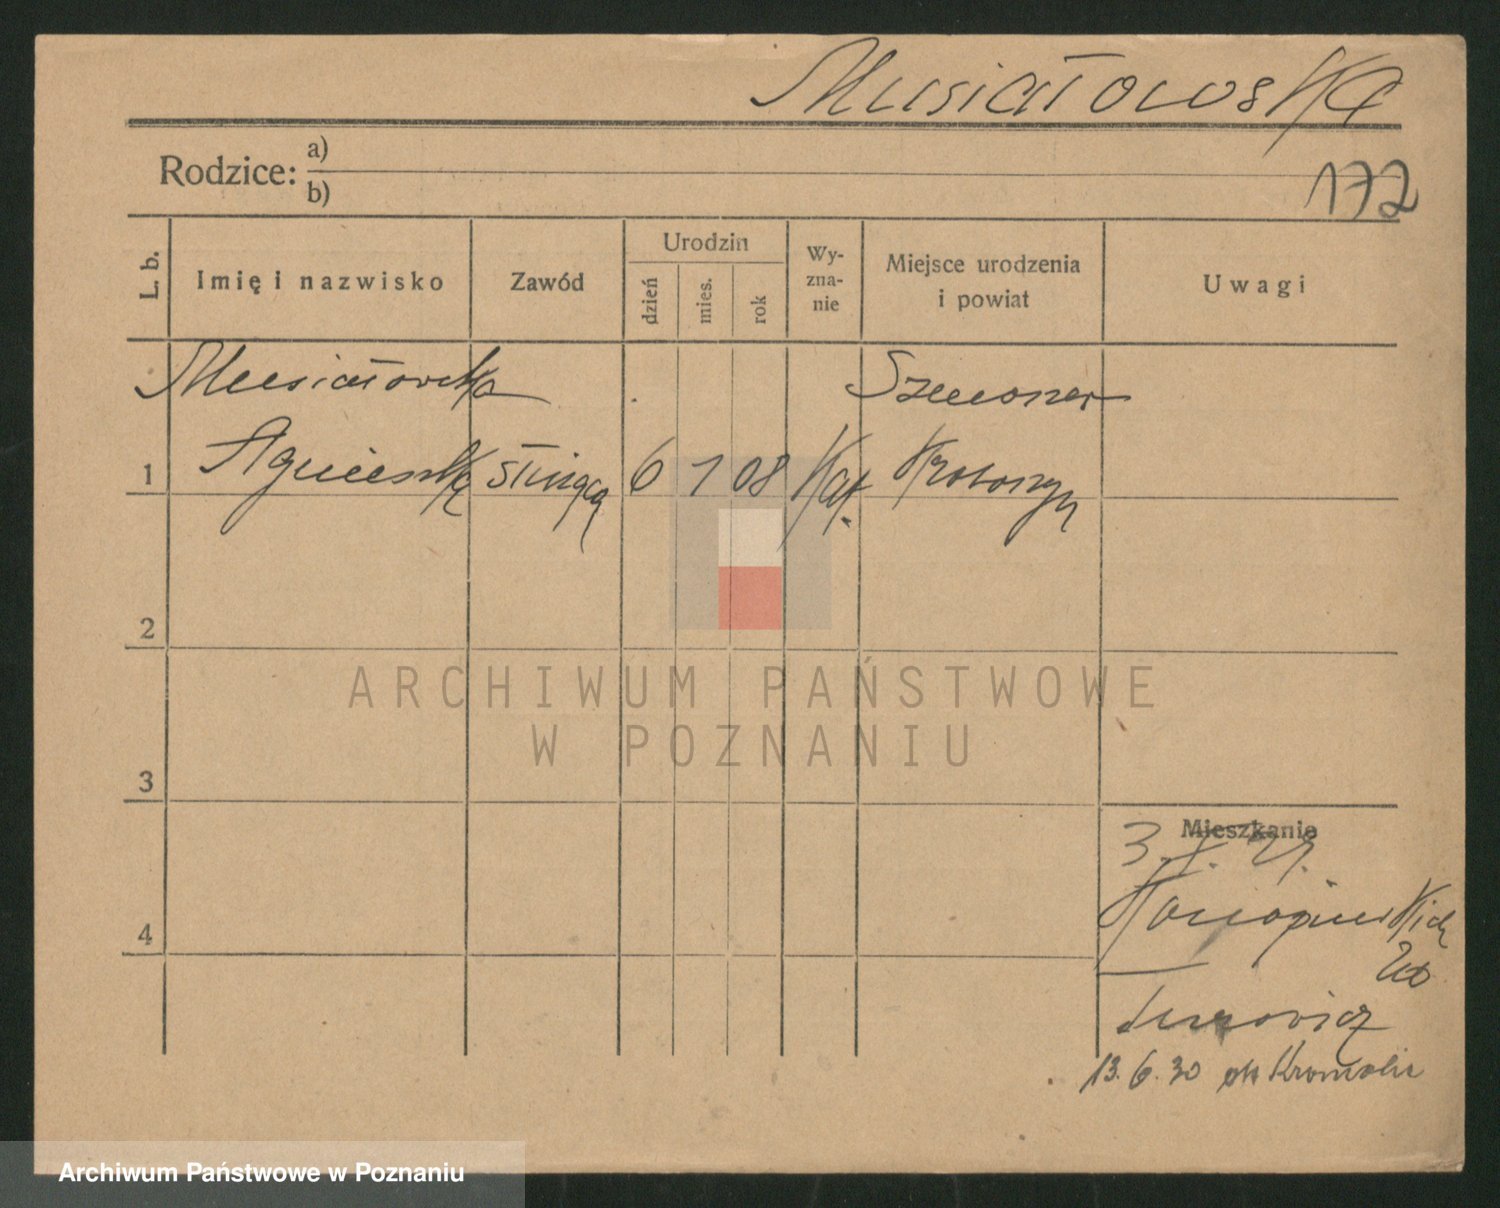 Musiałowska
Rodzice: a)
b)
172
L. b.
Imię i nazwisko
Zawód
Urodzin
dzień
mies.
rok
Wy-
zna-
nie
Miejsce urodzenia
i powiat
Uwagi
Musiałowska
Agnieszka służąca 6 1 08 Kat. Krotoszyn
1
2
3
4
Mieszkanie
3. 29.
13.6.30
ARCHIWUM PAŃSTWOWE
W POZNANIU
Archiwum Państwowe w Poznaniu